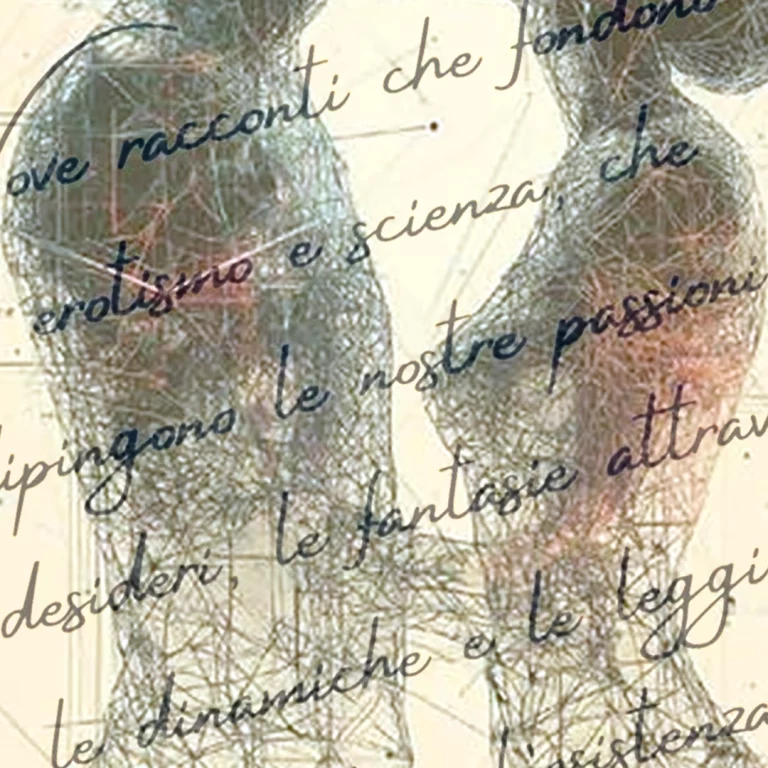 ove racconti che fondono
erotismo e scienza, che
dipingono le nostre passioni
desideri, le fantasie attrav
le dinamiche e le leggi
l'esistenza